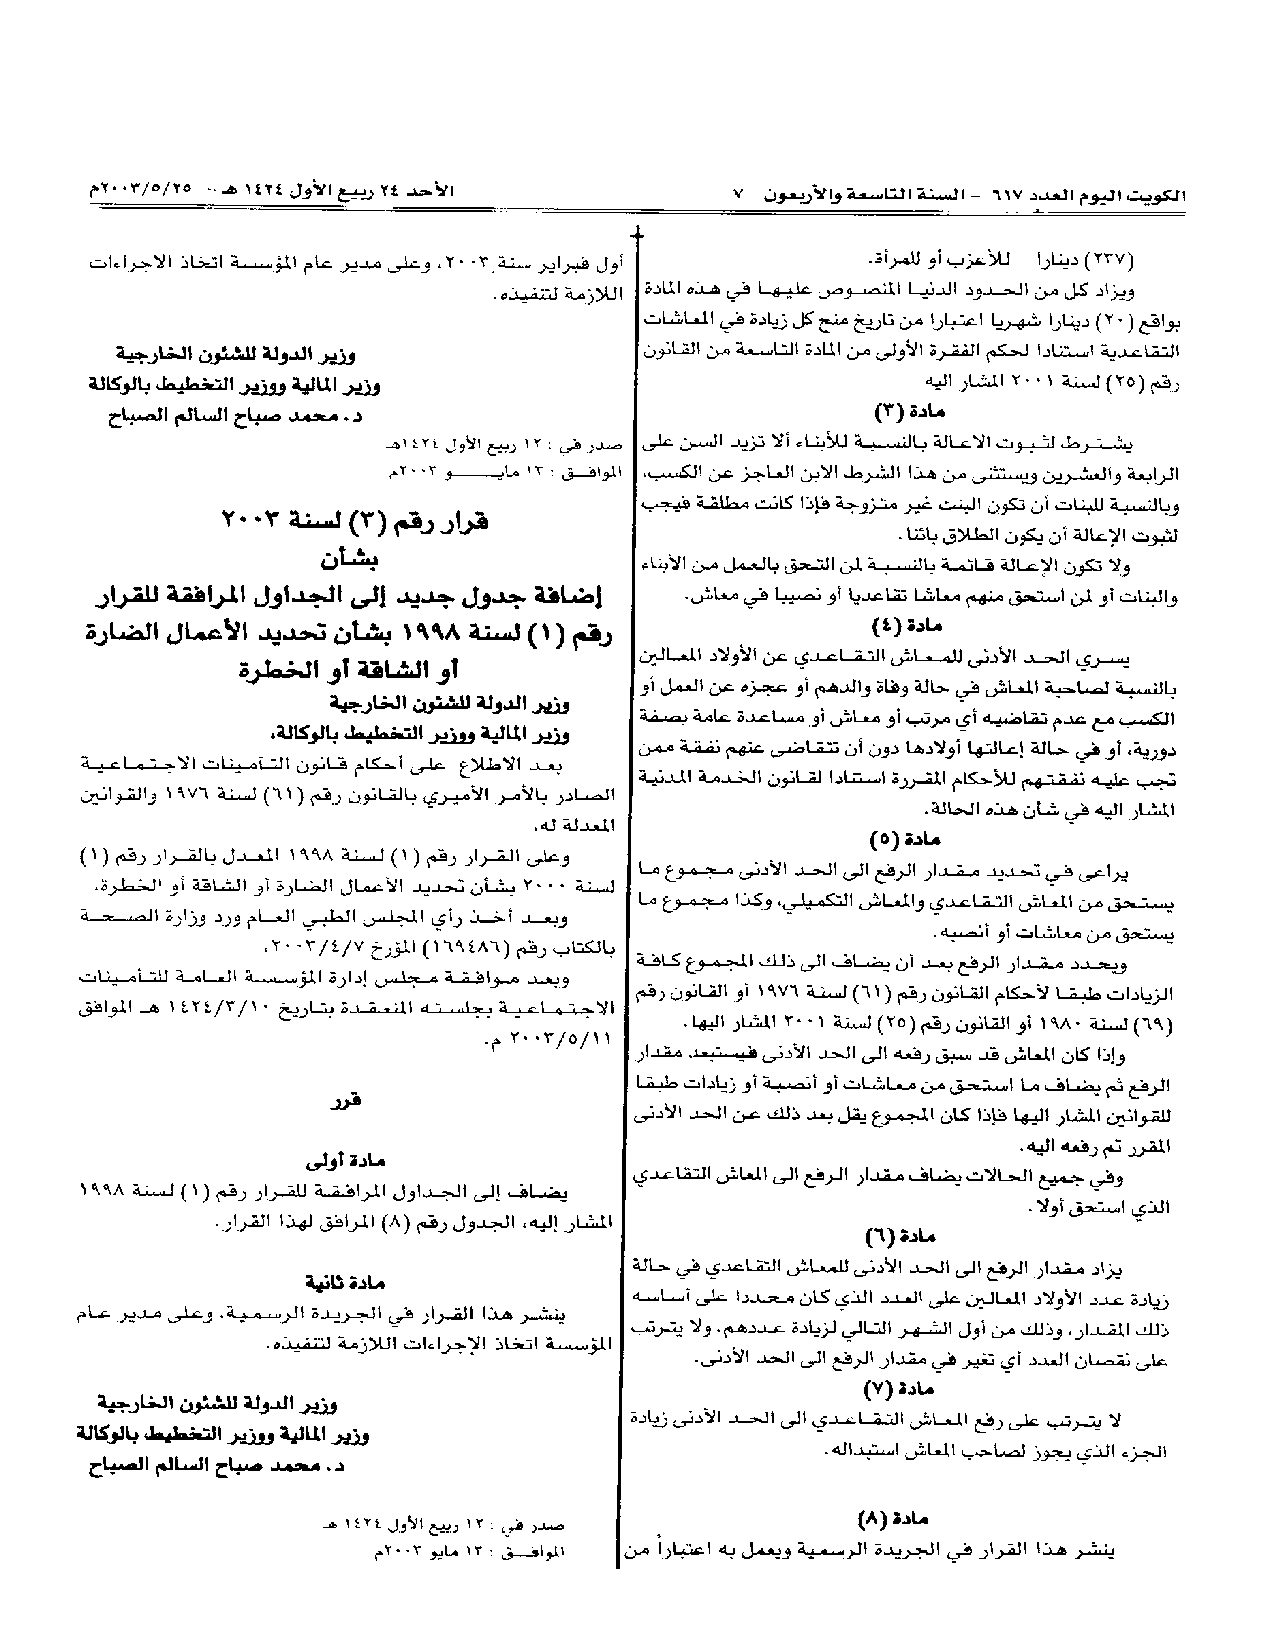 الكويت اليوم العدد ٦١٧ - السنة التاسعة والأربعون ٧
الأحد ٢٤ ربيع الأول ١٤٢٤ هـ - ٢٠٠٣/٥/٢٥م
(٢٣٧) دينارا للأعزب أو للمرأة.
ويزاد كل من الحدود الدنيا المنصوص عليها في هذه المادة
بواقع (٢٠) دينارا شهريا اعتبارا من تاريخ منح كل زيادة في المعاشات
التقاعدية استنادا لحكم الفقرة الأولى من المادة التاسعة من القانون
رقم (٢٥) لسنة ٢٠٠١ المشار اليه
مادة (٣)
يشترط لثبوت الاعالة بالنسبة للأبناء ألا تزيد السن على
الرابعة والعشرين ويستثنى من هذا الشرط الابن العاجز عن الكسب،
وبالنسبة للبنات أن تكون البنت غير متزوجة فإذا كانت مطلقة فيجب
لثبوت الإعالة أن يكون الطلاق بائنا.
ولا تكون الإعالة قائمة بالنسبة لمن التحق بالعمل من الأبناء
والبنات أو لمن استحق منهم معاشا تقاعديا أو نصيبا في معاش.
مادة (٤)
يسري الحد الأدنى للمعاش التقاعدي عن الأولاد المعالين
بالنسبة لصاحبة المعاش في حالة وفاة والدهم أو عجزه عن العمل أو
الكسب مع عدم تقاضيه أي مرتب أو معاش أو مساعدة عامة بصفة
دورية، أو في حالة إعالتها أولادها دون أن تتقاضى عنهم نفقة ممن
تجب عليه نفقتهم للأحكام المقررة استنادا لقانون الخدمة المدنية
المشار اليه في شأن هذه الحالة.
مادة (٥)
يراعى في تحديد مقدار الرفع الى الحد الأدنى مجموع ما
يستحق من المعاش التقاعدي والمعاش التكميلي، وكذا مجموع ما
يستحق من معاشات أو أنصبه.
ويحدد مقدار الرفع بعد أن يضاف الى ذلك المجموع كافة
الزيادات طبقا لأحكام القانون رقم (٦١) لسنة ١٩٧٦ أو القانون رقم
(٦٩) لسنة ١٩٨٠ أو القانون رقم (٢٥) لسنة ٢٠٠١ المشار اليها.
وإذا كان المعاش قد سبق رفعه الى الحد الأدنى فيستبعد مقدار
الرفع ثم يضاف ما استحق من معاشات أو أنصبة أو زيادات طبقا
للقوانين المشار اليها فإذا كان المجموع يقل بعد ذلك عن الحد الأدنى
المقرر تم رفعه اليه.
وفي جميع الحالات يضاف مقدار الرفع الى المعاش التقاعدي
الذي استحق أولا.
مادة (٦)
يزاد مقدار الرفع الى الحد الأدنى للمعاش التقاعدي في حالة
زيادة عدد الأولاد المعالين على العدد الذي كان محددا على أساسه
ذلك المقدار، وذلك من أول الشهر التالي لزيادة عددهم. ولا يترتب
على نقصان العدد أي تغير في مقدار الرفع الى الحد الأدنى.
مادة (٧)
لا يترتب على رفع المعاش التقاعدي الى الحد الأدنى زيادة
الجزء الذي يجوز لصاحب المعاش استبداله.
مادة (٨)
ينشر هذا القرار في الجريدة الرسمية ويعمل به اعتباراً من
أول فبراير سنة ٢٠٠٣، وعلى مدير عام المؤسسة اتخاذ الاجراءات
اللازمة لتنفيذه.
وزير الدولة للشئون الخارجية
وزير المالية ووزير التخطيط بالوكالة
د. محمد صباح السالم الصباح
صدر في : ١٢ ربيع الأول ١٤٢٤هـ
الموافـــق : ١٣ مايـــــو ٢٠٠٣م
قرار رقم (٣) لسنة ٢٠٠٣
بشأن
إضافة جدول جديد إلى الجداول المرافقة للقرار
رقم (١) لسنة ١٩٩٨ بشأن تحديد الأعمال الضارة
أو الشاقة أو الخطرة
وزير الدولة للشئون الخارجية
وزير المالية ووزير التخطيط بالوكالة،
بعد الاطلاع على أحكام قانون التأمينات الاجتماعية
الصادر بالأمر الأميري بالقانون رقم (٦١) لسنة ١٩٧٦ والقوانين
المعدلة له،
وعلى القرار رقم (١) لسنة ١٩٩٨ المعدل بالقرار رقم (١)
لسنة ٢٠٠٠ بشأن تحديد الأعمال الضارة أو الشاقة أو الخطرة،
وبعد أخذ رأي المجلس الطبي العام ورد وزارة الصحة
بالكتاب رقم (١٦٩٤٨٦) المؤرخ ٢٠٠٣/٤/٧،
وبعد موافقة مجلس إدارة المؤسسة العامة للتأمينات
الاجتماعية بجلسته المنعقدة بتاريخ ١٤٢٤/٣/١٠ هـ الموافق
٢٠٠٣/٥/١١ م.
قرر
مادة أولى
يضاف إلى الجداول المرافقة للقرار رقم (١) لسنة ١٩٩٨
المشار إليه، الجدول رقم (٨) المرافق لهذا القرار.
مادة ثانية
ينشر هذا القرار في الجريدة الرسمية، وعلى مدير عام
المؤسسة اتخاذ الإجراءات اللازمة لتنفيذه.
وزير الدولة للشئون الخارجية
وزير المالية ووزير التخطيط بالوكالة
د. محمد صباح السالم الصباح
صدر في : ١٢ ربيع الأول ١٤٢٤ هـ
الموافـــق : ١٣ مايو ٢٠٠٣م